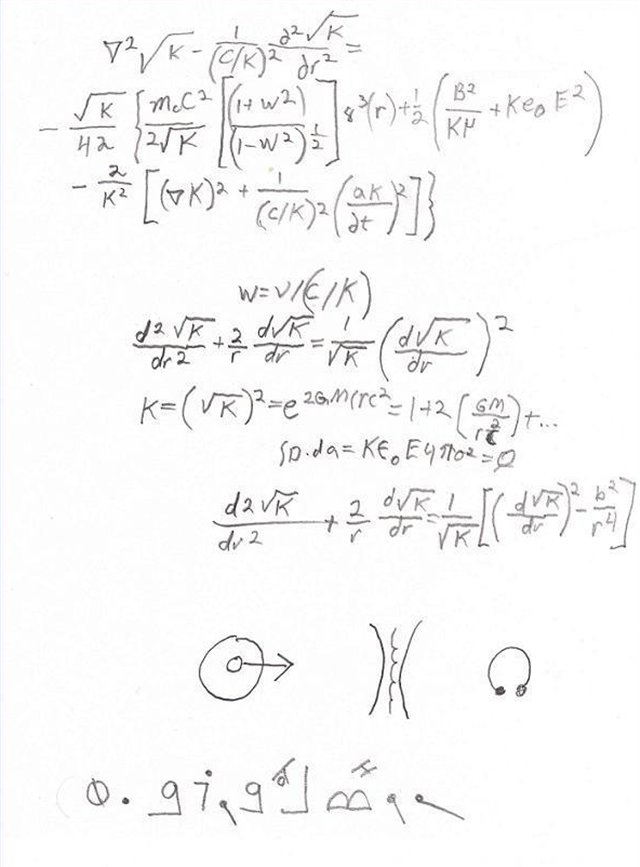 ∇²√K - 1/(C/K)² ∂²√K/∂r² =
- √K/4λ { m₀C²/2√K [ (1+w²)/(1-w²)½ ] 8³(r) + ½ ( B²/Kμ + Ke₀E² )
- 2/K² [ (∇K)² + 1/(C/K)² (aK/∂t)² ] }
w=v/(C/K)
d2√K/dr2 + 2/r d√K/dr = 1/√K (d√K/dr)²
K=(√K)²=e^2GM/rc²=1+2(GM/rc²)+...
∫D.da=Kε₀E4πo²=Q
d2√K/dr2 + 2/r d√K/dr = 1/√K [ (d√K/dr)² - b²/r⁴ ]